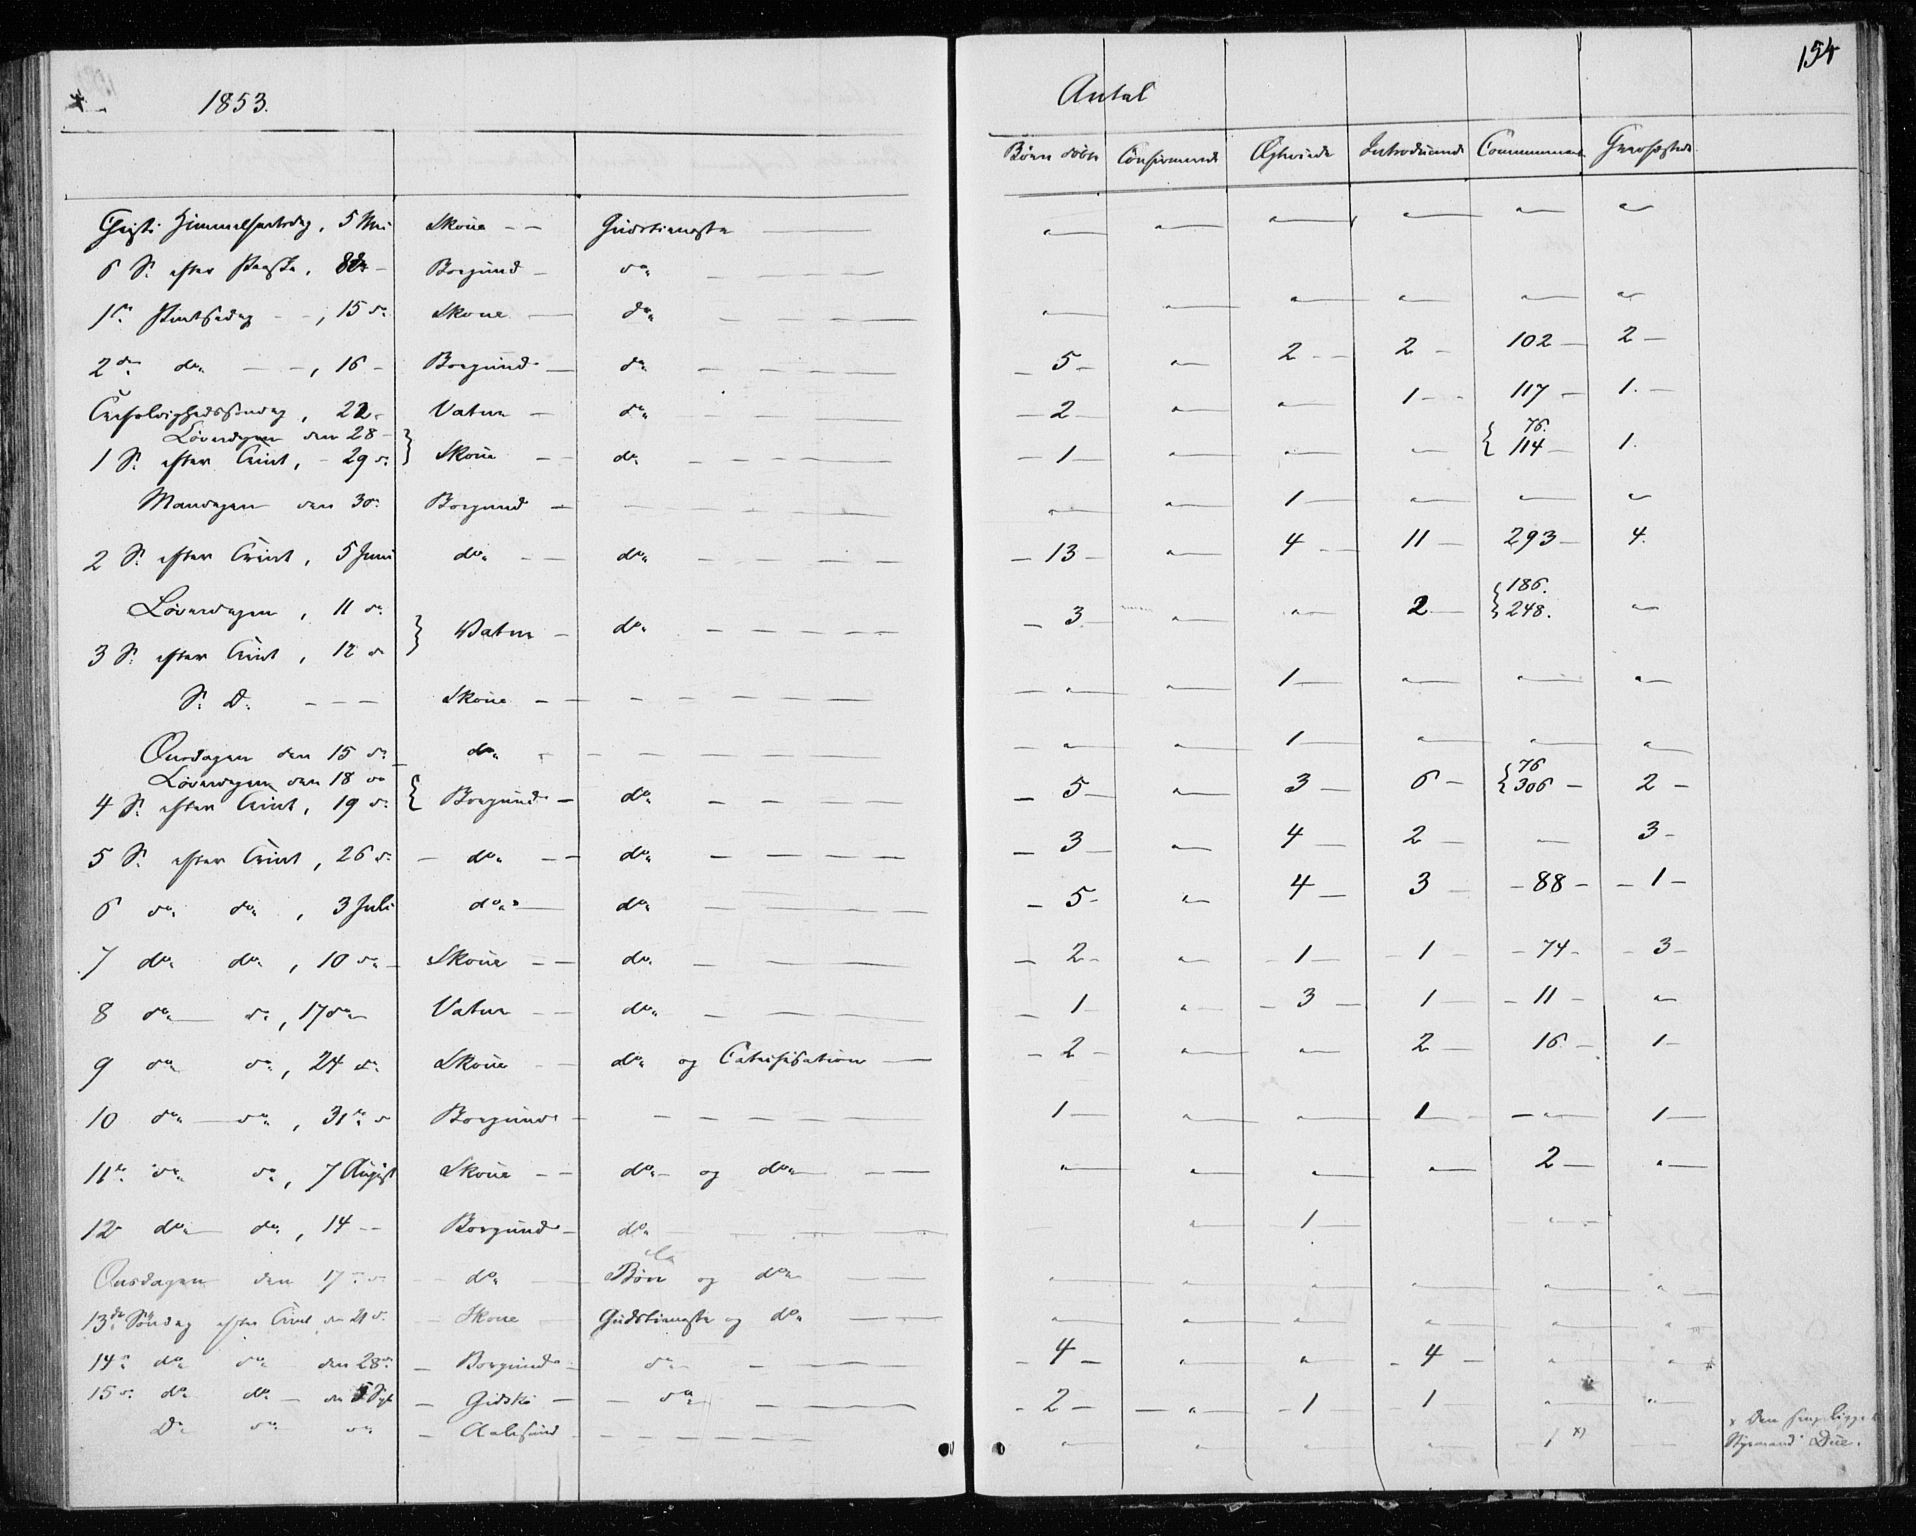 1853.
Antal
154
Børn døbte Confirmerede Ægteviede Introducerede Communicant. Grovfæstede
Christi Himmelfartsdag, 5 Mai Skoue - - Gudstieneste
6 S. efter Paaske, 8de - Borgund - do
1ste Pintsedag - -, 15 do Skoue - do
2den do - -, 16 - Borgund - do - 5 - " 2 - 2 - 102 - 2 -
Trefoldighedssøndag, 22 - Vatne - do - 2 - " " 1 - 117 - 1. -
Løverdagen den 28 - 76.
1 S. efter Trinit, - 29 do Skoue - do - 1 - " " " 114 - 1.
Mandagen den 30 Borgund - " " 1 - " " "
2 S. efter Trinit, 5 Juni do - - do - 13 - " 4 - 11 - 293 - 4.
Løverdagen, 11 do 186.
Vatne - do - 3 - " " 2 - 248. "
3 S. efter Trinit, 12 do
S. D. - - - Skoue - - " " 1 - " " "
Onsdagen den 15 do do - " " 1 - " " "
Løverdagen den 18 do 76
4 S. efter Trinit, 19 do Borgund - do - 5 - " 3 - 6 - 306 - 2 -
5 S. efter Trinit, 26 do - do - - do - 3 - " 4 - 2 - " 3 -
6 do do, 3 Juli do - do - 5 - " 4 - 3 - 88 - - 1 -
7 do do, 10 do - Skoue - - do - 2 - " - 1 - - 1 - - 74 - - 3 -
8 do do, 17 do Vatne - - do - 1 - " - 3 - 1 - - 11 - "
9 do do, 24 do Skoue - - do og Catechisation - 2 - " " 2 - 16 - 1 -
10 do do, 31te do Borgund - 1 - " " 1 - " 1 -
11te do do, 7 August Skoue - - do og do " " " " 2 - "
12 do do, 14 - - Borgund - do " 1 - "
Onsdagen den 17 do - do Bøn og do " " " " " "
13de Søndag efter Trinit den 21 do - Skoue Gudstieneste og do " " " " " "
14de do do den 28de - Borgund - do - 4 - " " - 4 - " "
15de do do - den Sept - Gidske - - do - 2 - " - 1 - 1 - " "
Do do do - Aalesund - " " " " 1 x)
x Den
Styrmand Due.